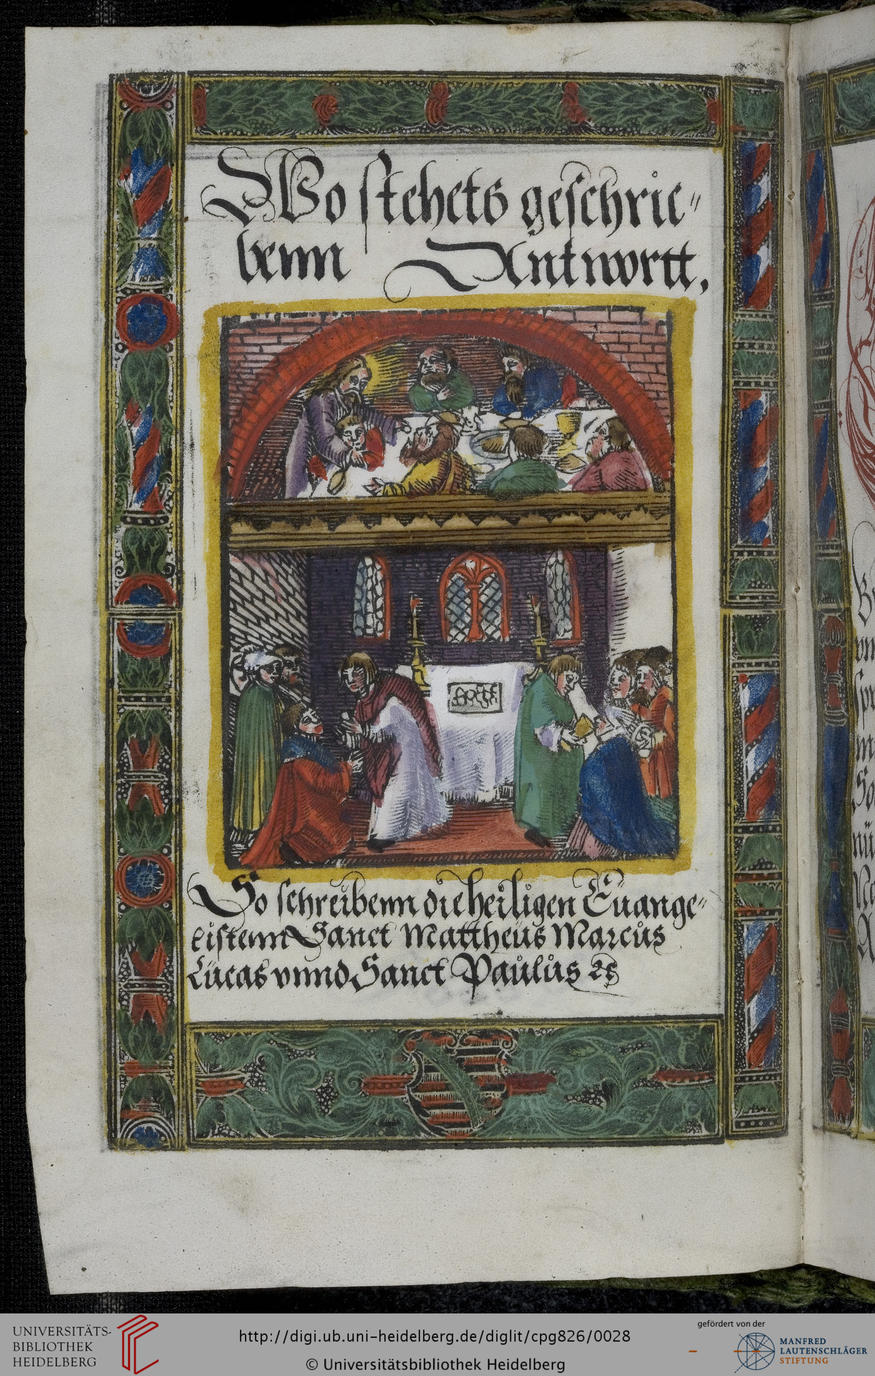 Wo stehets geschrie⸗
benn Antwortt,
So schreibenn die heiligen Euange⸗
listenn Sanct Mattheus Marcus
Lucas vnnd Sanct Paulus ꝛc
UNIVERSITÄTS-
BIBLIOTHEK
HEIDELBERG
http://digi.ub.uni-heidelberg.de/diglit/cpg826/0028
© Universitätsbibliothek Heidelberg
gefördert von der
MANFRED
LAUTENSCHLÄGER
STIFTUNG